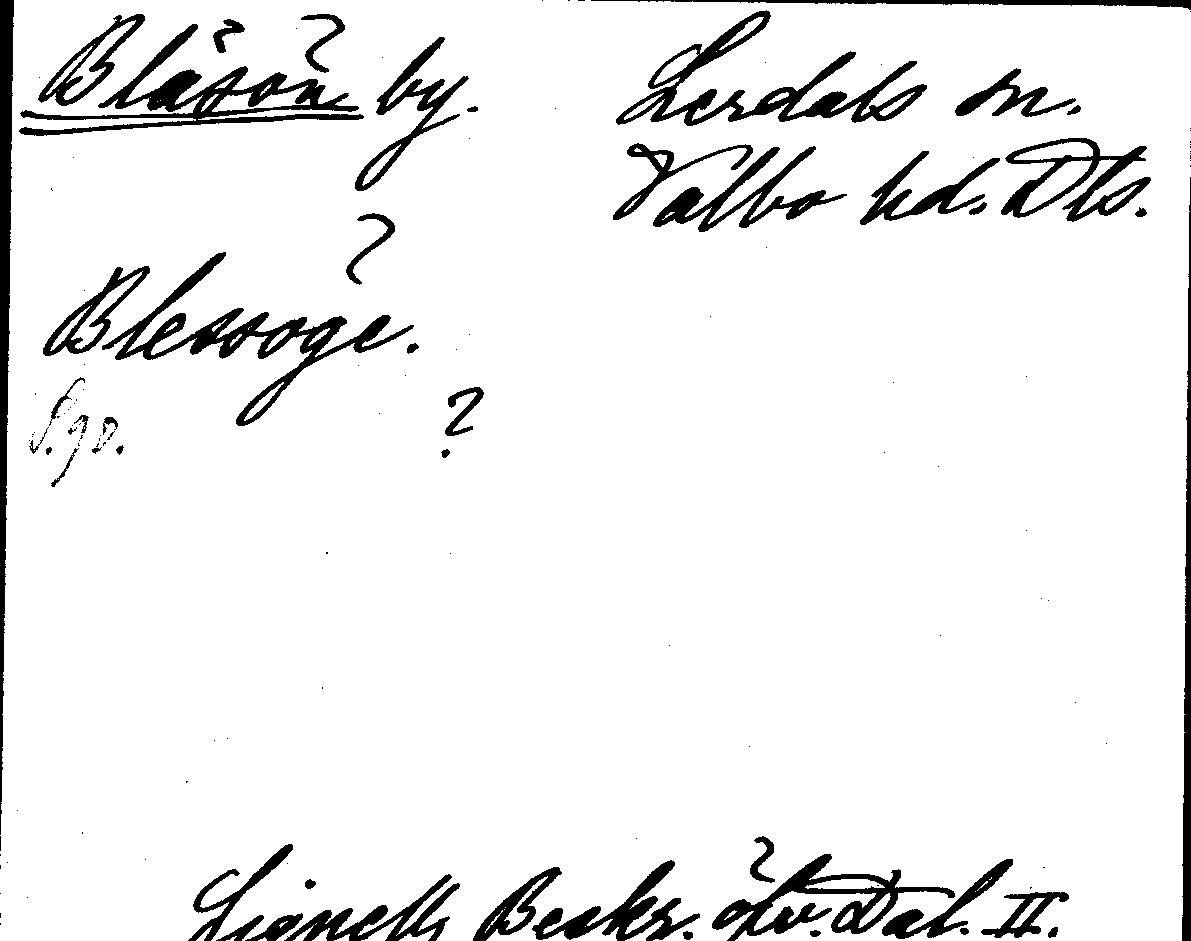 Bläsön by. Lerdals sn.
Valbo hd. Dls.
Blessöge.
S. 90.
?
Lignells Beskr. öfv. Dal. II.